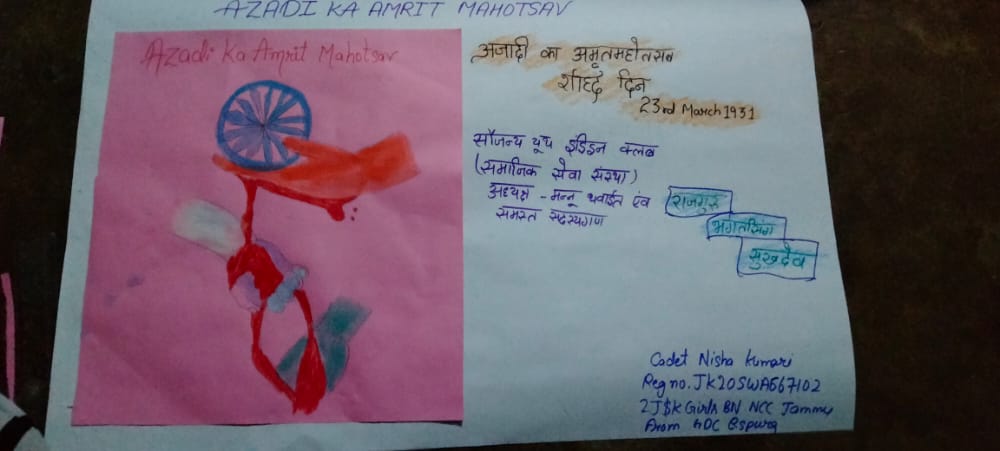 AZADI KA AMRIT MAHOTSAV
Azadi Ka Amrit Mahotsav
अजादी का अमृतमहोत्सव
शहिद दिन
23rd March 1931
सौजन्य यूथ इंडिइन क्लब
(समाजिक सेवा संस्था)
अध्यक्ष - मन्नू थवाईत एंव
समस्त सदस्यगण
राजगुरु
भगतसिंग
सुखदेव
Cadet Nisha Kumari
Reg no. JK20SWA567102
2J&K Girls BN NCC Jammu
From GDC